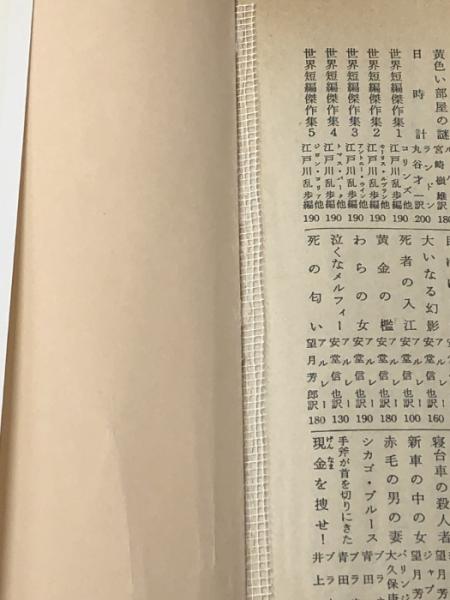 黄色い部屋の謎 宮崎嶺雄訳 180
日時計 ランドン 丸谷才一訳 200
世界短編傑作集1 コリンズ他 江戸川乱歩編 190
世界短編傑作集2 モーリス・ルブラン他 江戸川乱歩編 190
世界短編傑作集3 アントニー・ウィン他 江戸川乱歩編 190
世界短編傑作集4 トマス・バーク他 江戸川乱歩編 190
世界短編傑作集5 ジョン・コリア他 江戸川乱歩編 190
大いなる幻影 アルレー 安堂信也訳 160
死者の入江 アルレー 安堂信也訳 100
黄金の檻 アルレー 安堂信也訳 180
わらの女 アルレー 安堂信也訳 190
泣くなメルフィー アルレー 安堂信也訳 130
死の匂い アルレー 望月芳郎訳 180
寝台車の殺人者 ジャプ 望月芳
新車の中の女 ジャプ 望月芳
赤毛の男の妻 バリンジ 大久保康
シカゴ・ブルース ブラ 青田
手斧が首を切りにきた ブラ 青田
現金を捜せ! ブラ 井上
げんなま